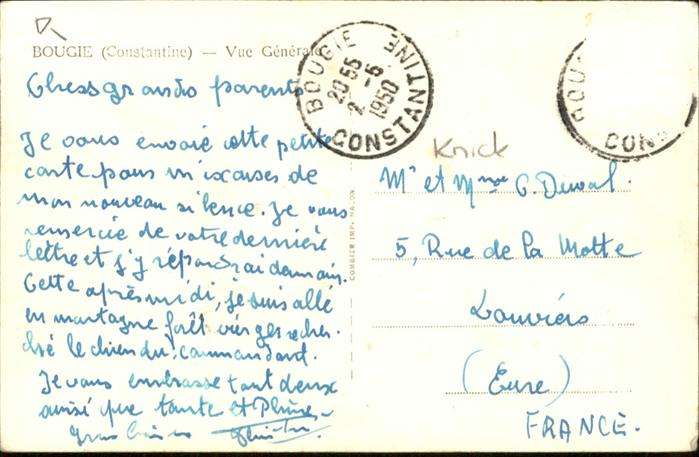 BOUGIE (Constantine) — Vue Générale
BOUGIE CONSTANTINE
20 55
2 -5
1950
BOU
CONS
Knick
Chers grands parents
Je vous envoie cette petite
carte pour m'excuser de
mon nouveau silence. Je vous
remercie de votre dernière
lettre et j'y répondrai demain.
Cette après midi, je suis allé
en montagne forêt vierge
le chien du commandant.
Je vous embrasse tout deux
ainsi que tante et
COMBIER IMP. MACON
Mr et Mme G. Duval.
5, Rue de la Motte
Louviers
(Eure)
FRANCE.